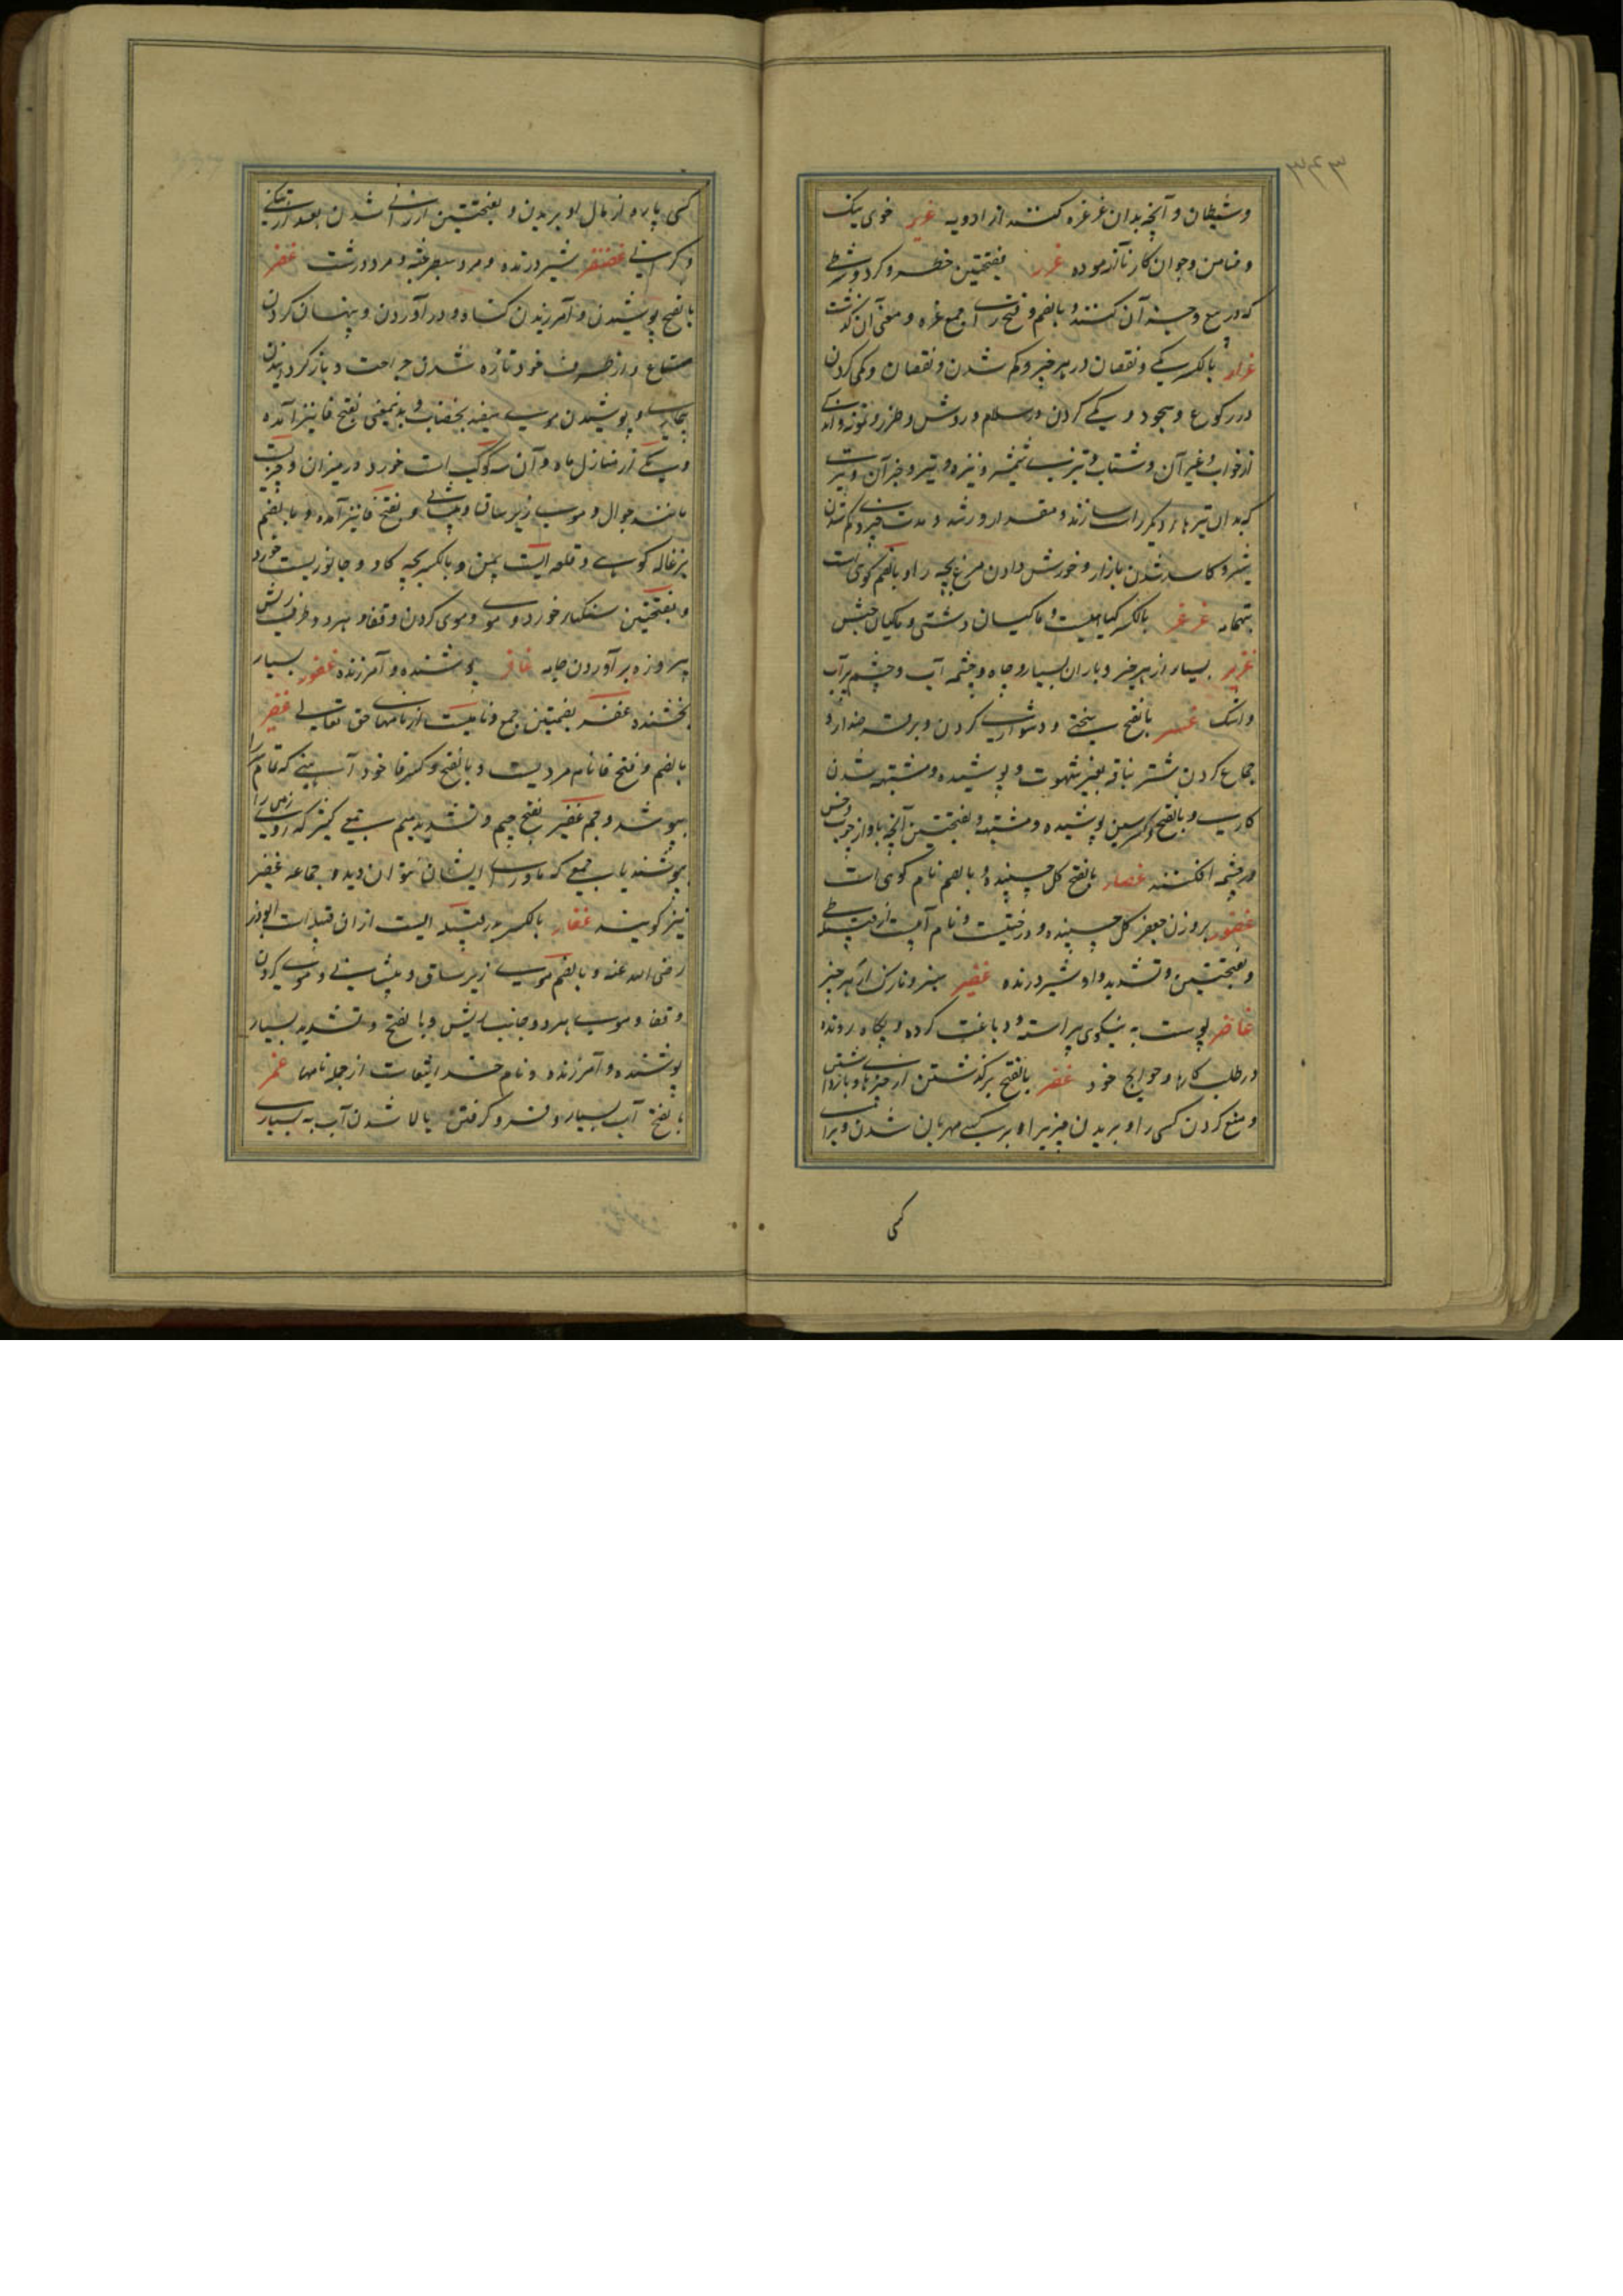 وشیطان و آنچه بدان غرغره کنند از ادویه غریر خوی نیک
وضامن وجوان کار ناآزموده غرر بفتحتین خطر و کرد و شرطی
که در بیع و جز آن کنند و بالضم و فتح را جمع غره و معنی آن گذشت
غرار بالکسر کمی و نقصان در هر چیز و کم شدن و نقصان و کمی کردن
در رکوع و سجود و کمی کردن در سلام و روش و طرز و نمونه و اندکی
از خواب و غیر آن و شتاب و تیزی شمشیر و نیزه و تیر و جز آن و تیری
که بدان تیرها دیگر راست سازند و مقدار و رشد و مدت چیزی و کم شدن
شیر و کاسد شدن بازار و خورش دادن مرغ بچه را و بالضم کوهی است
بتهامه غرغر بالکسر گیاهیست و ماکیان دشتی و ماکیان حبش
غزیر بسیار از هر چیز و باران بسیار و چاه و چشمه آب و چشم پرآب
واشک عسر بالفتح سختی و دشواری کردن و برقرضدار و
جماع کردن شتر بناقه بغیر شهوت و پوشیده و مشتبه شدن
کاری و بالفتح و کسر سین پوشیده و مشتبه و بفتحتین آنچه باد از چوب و خس
در چشمه افکند غضار بالفتح گل چسپنده و بالضم نام کوهی است
غضور بر وزن جعفر گل چسپنده و درختیست و نام آبیست از قبیله طی
و بفتحتین و تشدید واو شیر درنده غضیر سبز و نازک از هر چیز
غاضر پوست به نیکوی پیراسته و دباغت کرده و پگاه رونده
در طلب کارها و حوایج خود غضر بالفتح برگذشتن از چیزها و بازداشتن
و منع کردن کسی را و بریدن چیزیرا و بر کسی مهربان شدن و برای
کسی
کسی پاره از مال او بریدن و بفتحتین ارزانی شدن بعد از تنگی
و گرانی غضنفر شیر درنده و مرد سطبر جثه و مرد درشت غفر
بالفتح پوشیدن و آمرزیدن گناه و در آوردن و پنهان کردن
متاع در ظرف خود و تازه شدن جراحت و بازگردیدن
بیماری و پوشیدن موی سفید بخضاب و بدینمعنی بفتح فا نیز آمده
و یکی از منازل ماه و آن سه کوکب است خورد در میزان و چیزیست
مانند جوال و موی زیر ساق و پیشانی و بفتح فا نیز آمده و بالضم
بزغاله کوهی و قلعه ایست بیمن و بالکسر بچه گاو و جانوریست خورد
و بفتحتین سنگهار خورد و موی و موی گردن و قفا و هر دو طرف ریش
پرزه بر آوردن جامه غافر پوشنده و آمرزنده غفور بسیار
بخشنده غفر بضمتین جمع و نامیست از نامهای حق تعالی غفیر
بالضم و فتح فا نام مردیست و بالفتح و کسر فا خود آهنی که تمام سر را
بپوشد و جم غفیر بفتح جیم و تشدید میم جمع کثیر که روی زمین را
بپوشند یا جمعی که ماورای ایشان نتوان دید و جماعه غفیر
نیز گویند غفار بالکسر قبیله ایست از ان قبیله است ابوذر
رضی الله عنه و بالضم موی زیر ساق و پیشانی و موی گردن
و قفا و موی هر دو جانب ریش و بالفتح و تشدید بسیار
پوشنده و آمرزنده و نام خدایتعالی است از جمله نامها غمر
بالفتح آب بسیار و فرو گرفتن و بالا شدن آب به بسیاری